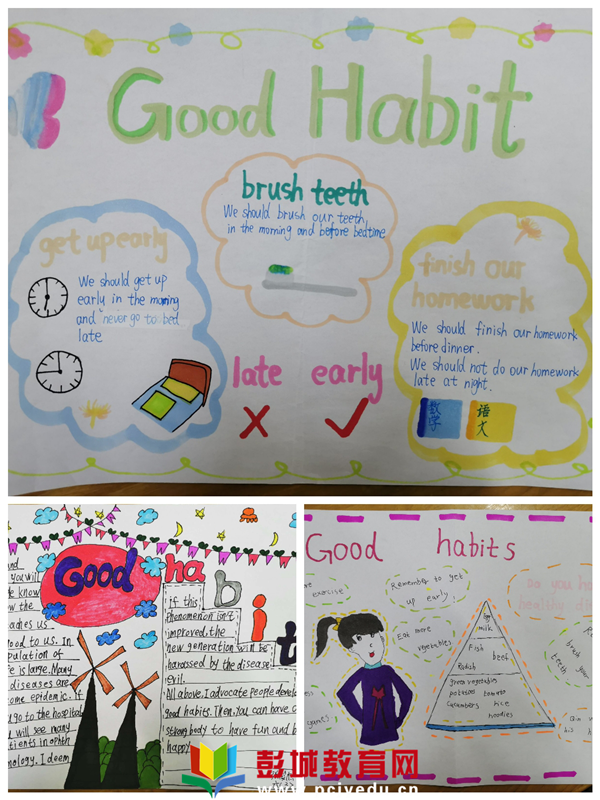 Good Habit
brush teeth
We should brush our teeth
in the morning and before bedtime
get up early
We should get up
early in the morning
and never go to bed
late
finish our
homework
We should finish our homework
before dinner.
We should not do our homework
late at night.
数学
语文
late early
Good
habit
you will
know
w the
us
ood to us. In
pulation of
e is large. Many
diseases are
ome epidemic. If
u go to the hospital
u will see many
tients in ophth
mology, I deem
if this
phenomenon isn't
improved, the
new generation will be
harassed by the disease
evil.
All above, I advocate people develo
good habits. Then, you can have a
strong body to have fun and b
happy
Good habits
exercise!
Remember to get
up early!
Eat more
vegetables
milk
Fish
beef
green vegetables
potatoes tomato
cucumbers rice
noodles
Do you ha
healthy di
teeth
彭城教育网
www.pcjyedu.cn